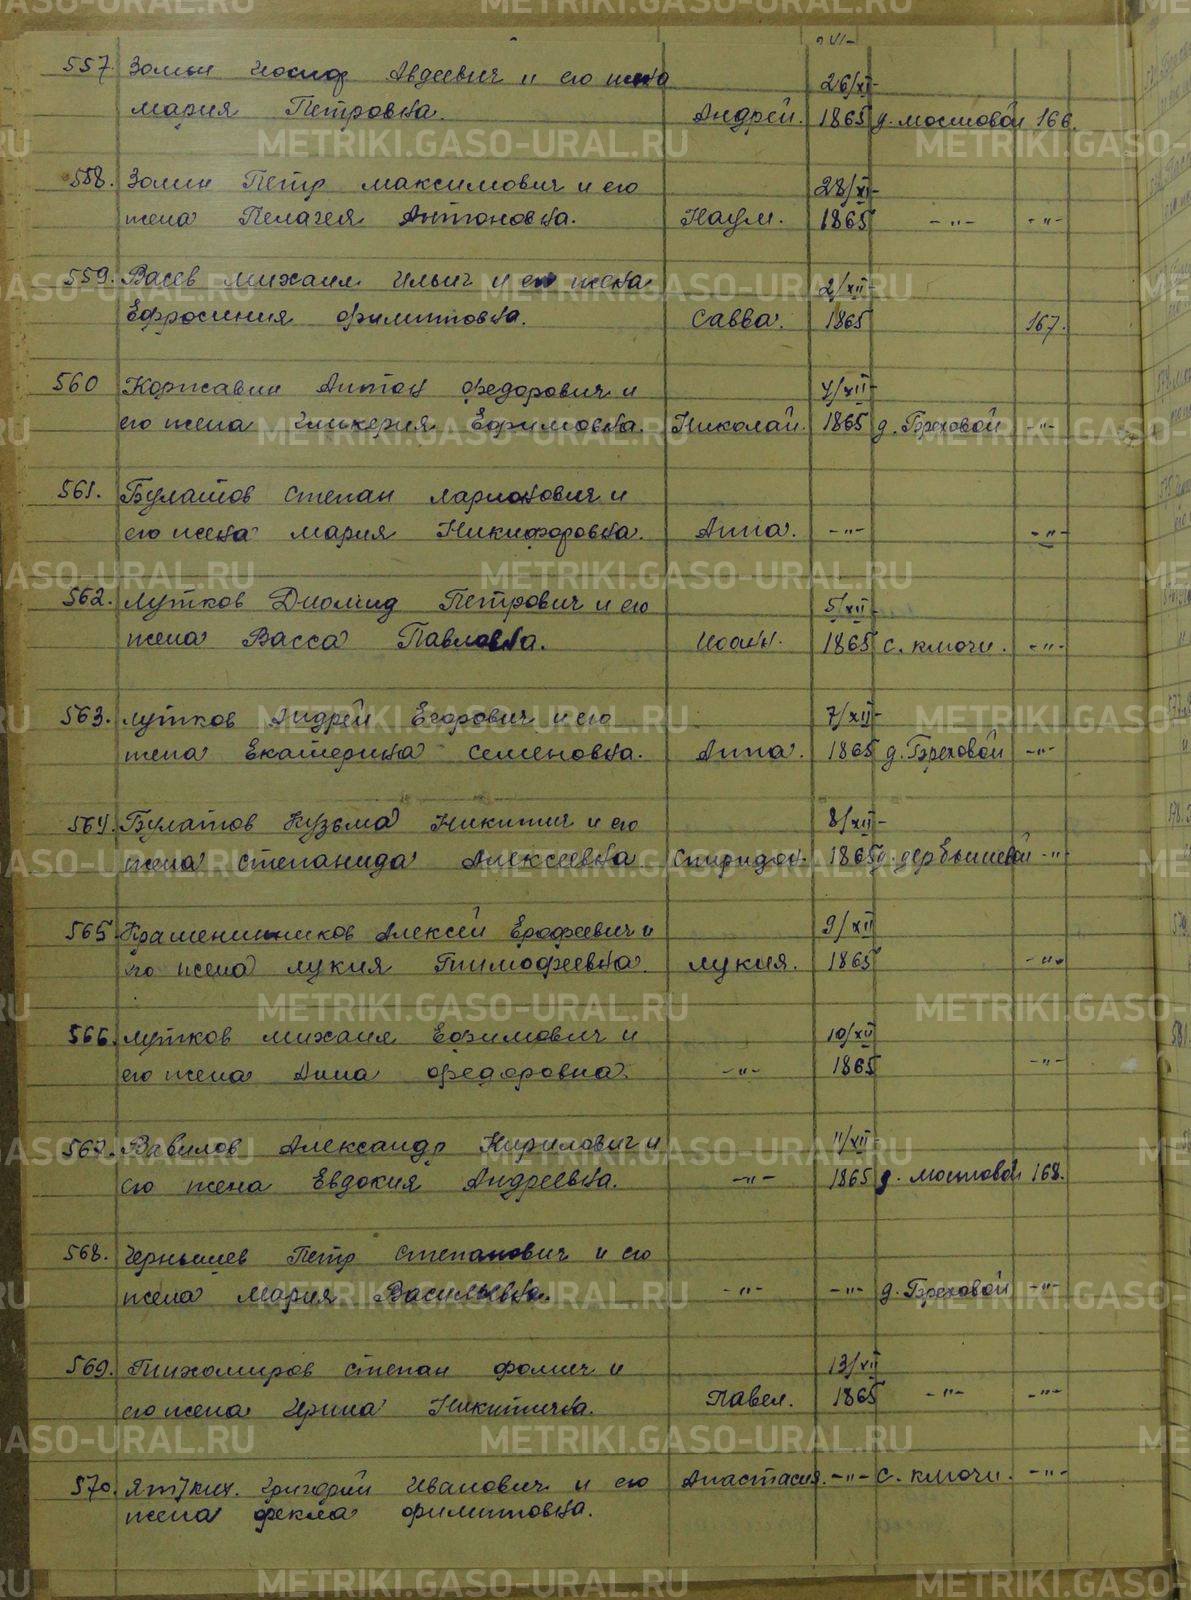 557. Золин Иосиф Авдеевич и его жена 26/XI-
Мария Петровна. Андрей. 1865 д. Мостовой 166.
558. Золин Петр Максимович и его 28/XI-
жена Пелагея Антоновна. Наум. 1865 -"- -"-
559. Васев Михаил Ильич и его жена 2/XII-
Ефросиния Филипповна. Савва. 1865 167.
560 Коржавин Антон Федорович и 4/XII-
его жена Гликерия Ефимовна. Николай. 1865 д. Греховой -"-
561. Булатов Степан Ларионович и
его жена Мария Никифоровна. Анна. -"- -"-
562. Лутков Диомид Петрович и его 5/XII-
жена Васса Павловна. Иоанн. 1865 с. Ключи. -"-
563. Лутков Андрей Егорович и его 7/XII-
жена Екатерина Семеновна. Анна. 1865 д. Греховой -"-
564. Булатов Кузьма Никитич и его 8/XII-
жена Степанида Алексеевна Спиридон. 1865 д. Дербышевой -"-
565. Крашенинников Алексей Ерофеевич и 9/XII
его жена Лукия Тимофеевна. Лукия. 1865 -"-
566. Лутков Михаил Ефимович и 10/XII
его жена Анна Федоровна. -"- 1865 -"-
567. Вавилов Александр Кирилович и 11/XII-
его жена Евдокия Андреевна. -"- 1865 д. Мостовой 168.
568. Чернышев Петр Степанович и его
жена Мария Васильевна. -"- -"- д. Греховой -"-
569. Тихомиров Степан Фомич и 13/XII
его жена Ирина Никитична. Павел. 1865 -"- -"-
570. Григорий Иванович и его Анастасия. -"- с. Ключи. -"-
жена Фекла Филипповна.
METRIKI.GASO-URAL.RU